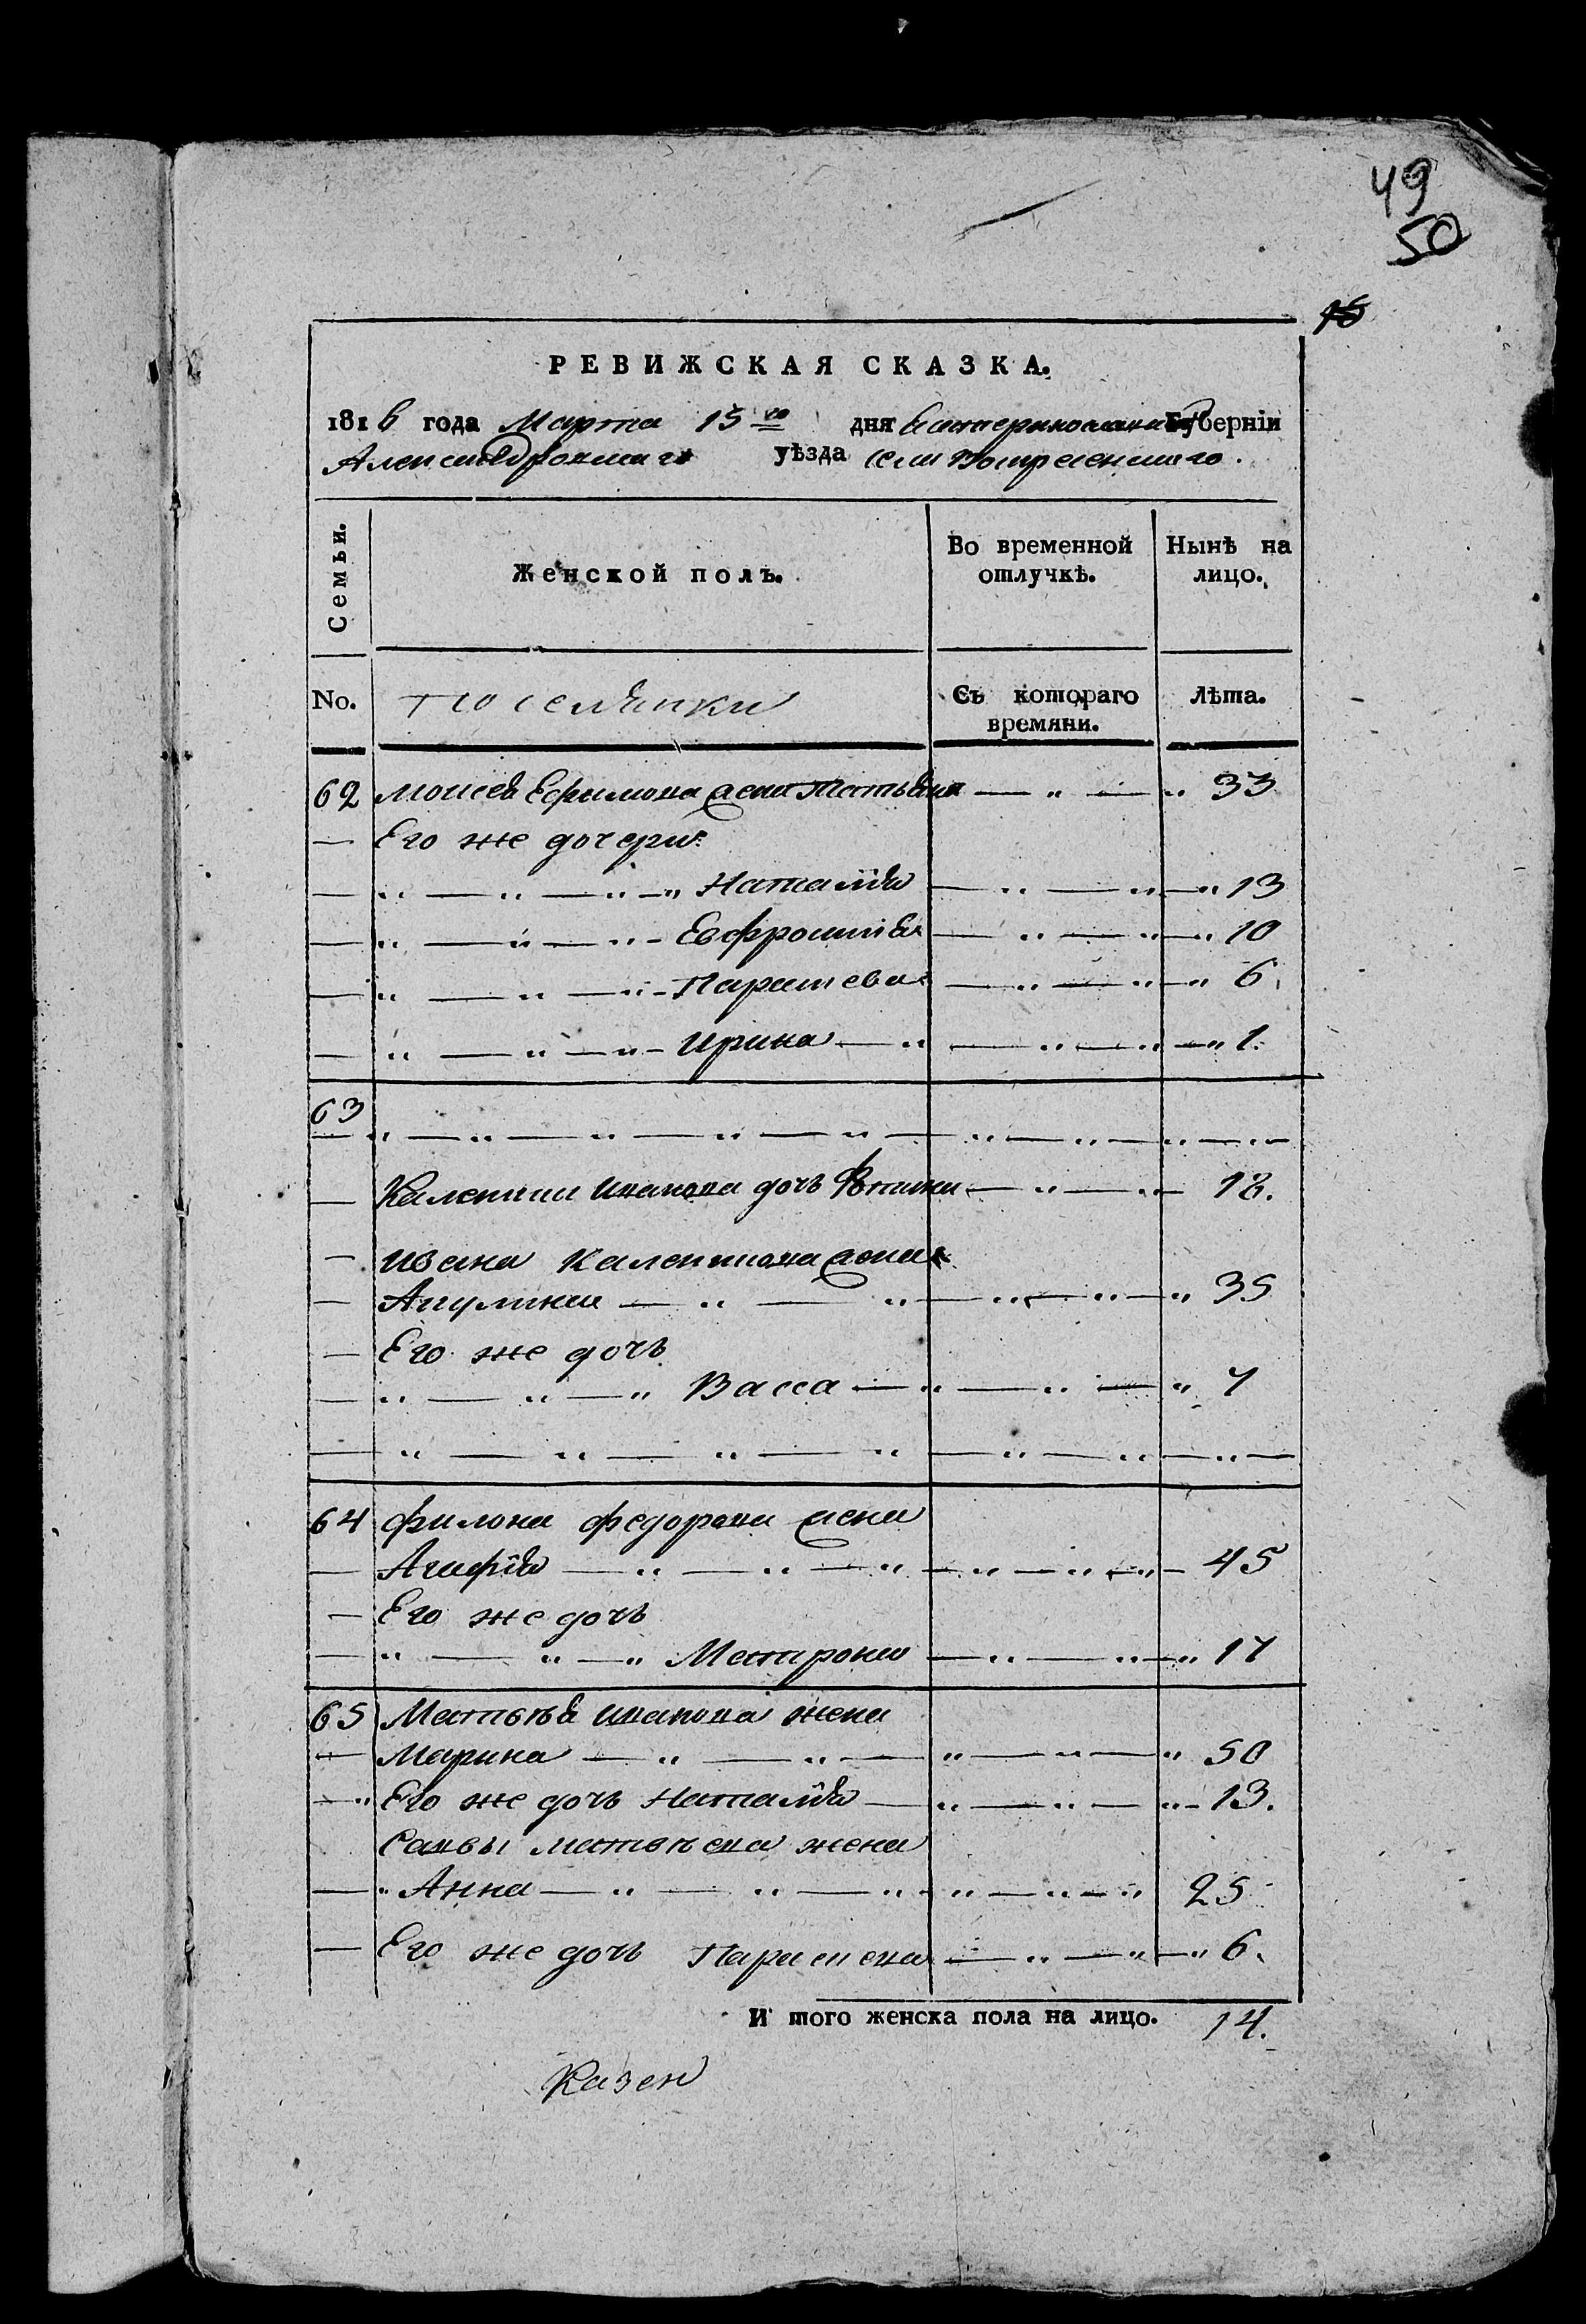 49
50
16
РЕВИЖСКАЯ СКАЗКА.
1816 года Марта 15го дня Екатеринославской Губернiи
Александровскаго уѣзда села Воскресенскаго.
Семьи.
Женской полъ.
Во временной отлучкѣ.
Нынѣ на лицо.
No.
Поселянки
Съ котораго времяни.
Лѣта.
62 Моисея Ефимова жена Татьяна — " — " 33
— Его же дочери:
— " — " — " — " Наталiя — " — " — " 13
— " — " — " - Евфросинiя — " — " — " 10
— " — " — " - Параскева — " — " — " 6.
— " — " — " - Ирина — " — " — " — " 1.
63
— " — " — " — " — " — " — " — " — " —
— Каленика Иванова дочь — " — " — 18.
— Ивана Каленикова жена
— Акулина — " — " — " — " — " 35
— Его же дочь
— " — " — " Васса — " — " — " 7
— " — " — " — " — " — " — " —
64 Филона Федорова жена
— Агафiя — " — " — " — " — " — " — 45
— Его же дочь
— " — " — " Матрона — " — " — " 17
65 Матвѣя Иванова жена
— Марина — " — " — " — " — " 50
— " Его же дочь Наталiя — " — " — " - 13.
Саввы Матвѣева жена
— " Анна — " — " — " - " — " — " 25
— Его же дочь Параскева — " — " — " 6.
И того женска пола на лицо. 14.
Казен